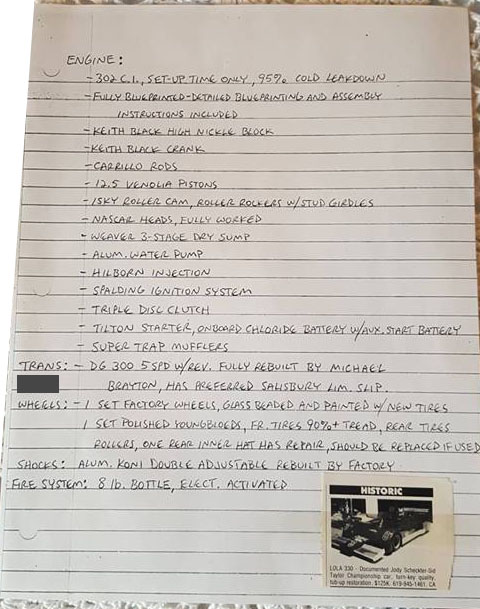 ENGINE:
- 302 C.I., SET-UP TIME ONLY, 95% COLD LEAKDOWN
- FULLY BLUEPRINTED - DETAILED BLUEPRINTING AND ASSEMBLY
INSTRUCTIONS INCLUDED
- KEITH BLACK HIGH NICKLE BLOCK
- KEITH BLACK CRANK
- CARRILLO RODS
- 12.5 VENOLIA PISTONS
- ISKY ROLLER CAM, ROLLER ROCKERS W/STUD GIRDLES
- NASCAR HEADS, FULLY WORKED
- WEAVER 3-STAGE DRY SUMP
- ALUM. WATER PUMP
- HILBORN INJECTION
- SPALDING IGNITION SYSTEM
- TRIPLE DISC CLUTCH
- TILTON STARTER, ONBOARD CHLORIDE BATTERY W/AUX. START BATTERY
- SUPER TRAP MUFFLERS
TRANS: - DG 300 5 SPD W/REV. FULLY REBUILT BY MICHAEL
BRAYTON, HAS PREFERRED SALISBURY LIM. SLIP.
WHEELS: - 1 SET FACTORY WHEELS, GLASS BEADED AND PAINTED W/ NEW TIRES
1 SET POLISHED YOUNGBLOODS, FR. TIRES 90%+ TREAD, REAR TIRES
ROLLERS, ONE REAR INNER HAT HAS REPAIR, SHOULD BE REPLACED IF USED
SHOCKS: ALUM. KONI DOUBLE ADJUSTABLE REBUILT BY FACTORY
FIRE SYSTEM: 8 lb. BOTTLE, ELECT. ACTIVATED
HISTORIC
LOLA 330 - Documented Jody Scheckter-Sid
Taylor Championship car, turn-key quality,
tub-up restoration. $125K. 619-945-1461, CA